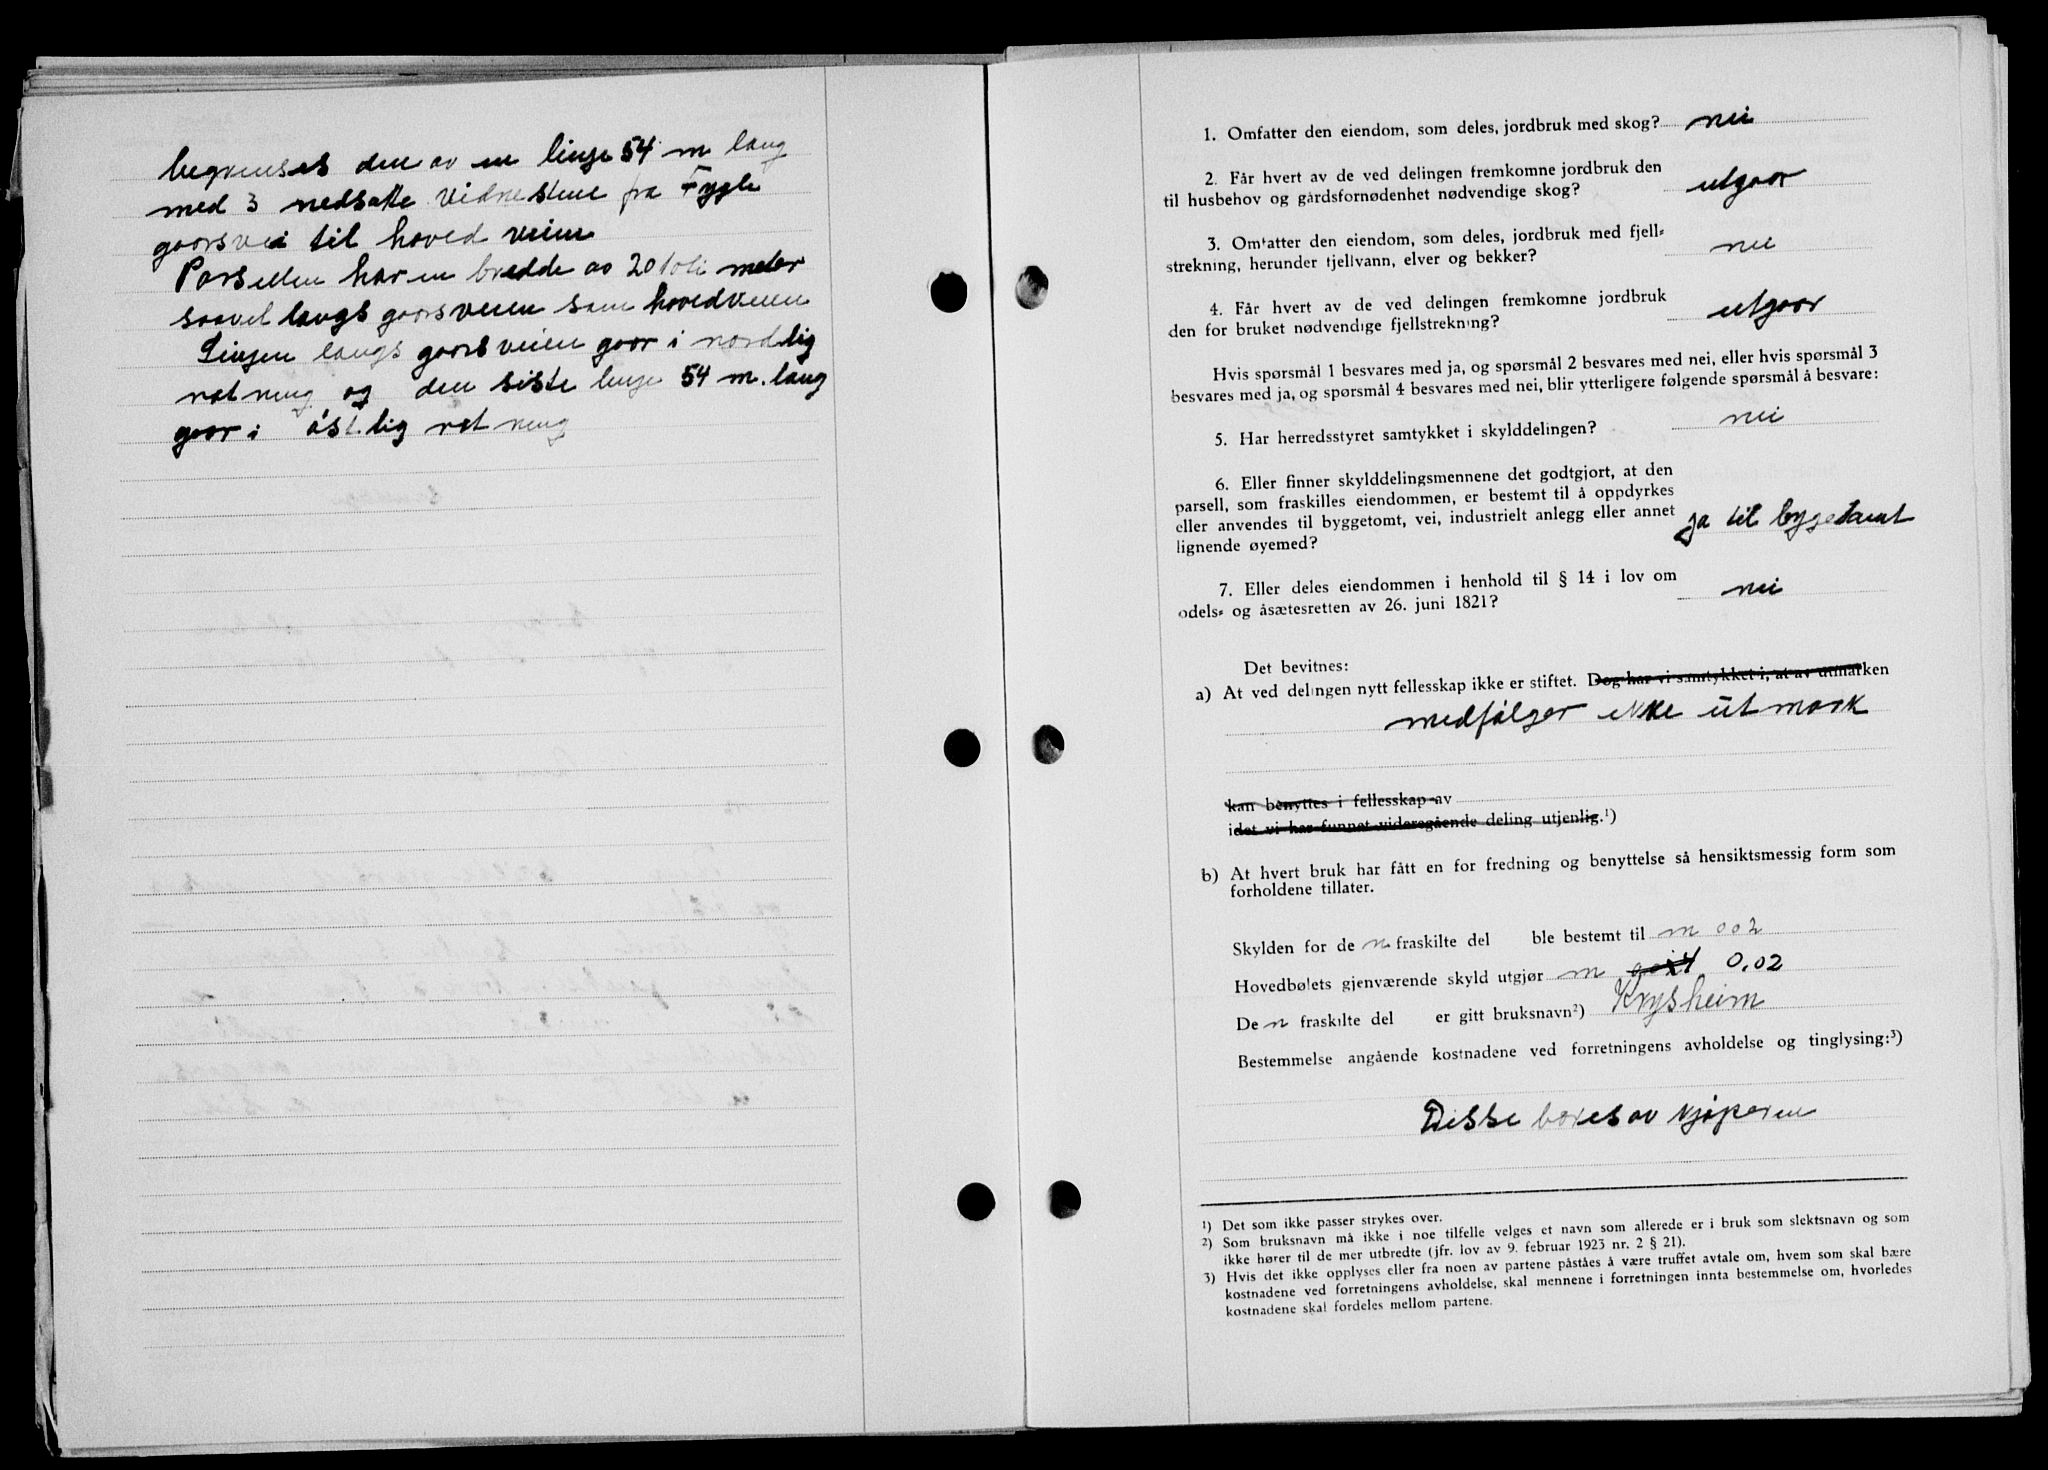 begrenses den av en linje 54 m lang
med 3 nedsatte vidnestene fra Fygle
gaorsvei til hoved veien
Parsellen har en bredde av 20 meter
saavel langs gaorsveien som hovedveien
Linjen langs gaorsveien gaar i nordlig
retning og den siste linje 54 m. lang
gaar i østlig retning
1. Omfatter den eiendom, som deles, jordbruk med skog? nei
2. Får hvert av de ved delingen fremkomne jordbruk den
til husbehov og gårdsfornødenhet nødvendige skog? utgaar
3. Omfatter den eiendom, som deles, jordbruk med fjell-
strekning, herunder fjellvann, elver og bekker? nei
4. Får hvert av de ved delingen fremkomne jordbruk
den for bruket nødvendige fjellstrekning? utgaar
Hvis spørsmål 1 besvares med ja, og spørsmål 2 besvares med nei, eller hvis spørsmål 3
besvares med ja, og spørsmål 4 besvares med nei, blir ytterligere følgende spørsmål å besvare:
5. Har herredsstyret samtykket i skylddelingen? nei
6. Eller finner skylddelingsmennene det godtgjort, at den
parsell, som fraskilles eiendommen, er bestemt til å oppdyrkes
eller anvendes til byggetomt, vei, industrielt anlegg eller annet
lignende øyemed? ja til byggetomt
7. Eller deles eiendommen i henhold til § 14 i lov om
odels- og åsætesretten av 26. juni 1821? nei
Det bevitnes:
a) At ved delingen nytt fellesskap ikke er stiftet. Dog har vi samtykket i, at av utmarken
medfølger ikke utmark
kan benyttes i fellesskap av
idet vi har funnet videregående deling utjenlig.¹)
b) At hvert bruk har fått en for fredning og benyttelse så hensiktsmessig form som
forholdene tillater.
Skylden for den fraskilte del ble bestemt til m 002
Hovedbølets gjenværende skyld utgjør m 0,02
Den fraskilte del er gitt bruksnavn²) Krysheim
Bestemmelse angående kostnadene ved forretningens avholdelse og tinglysing:³)
Disse bæres av kjøperen
¹) Det som ikke passer strykes over.
²) Som bruksnavn må ikke i noe tilfelle velges et navn som allerede er i bruk som slektsnavn og som
ikke hører til de mer utbredte (jfr. lov av 9. februar 1923 nr. 2 § 21).
³) Hvis det ikke opplyses eller fra noen av partene påståes å være truffet avtale om, hvem som skal bære
kostnadene ved forretningens avholdelse, skal mennene i forretningen innta bestemmelse om, hvorledes
kostnadene skal fordeles mellom partene.